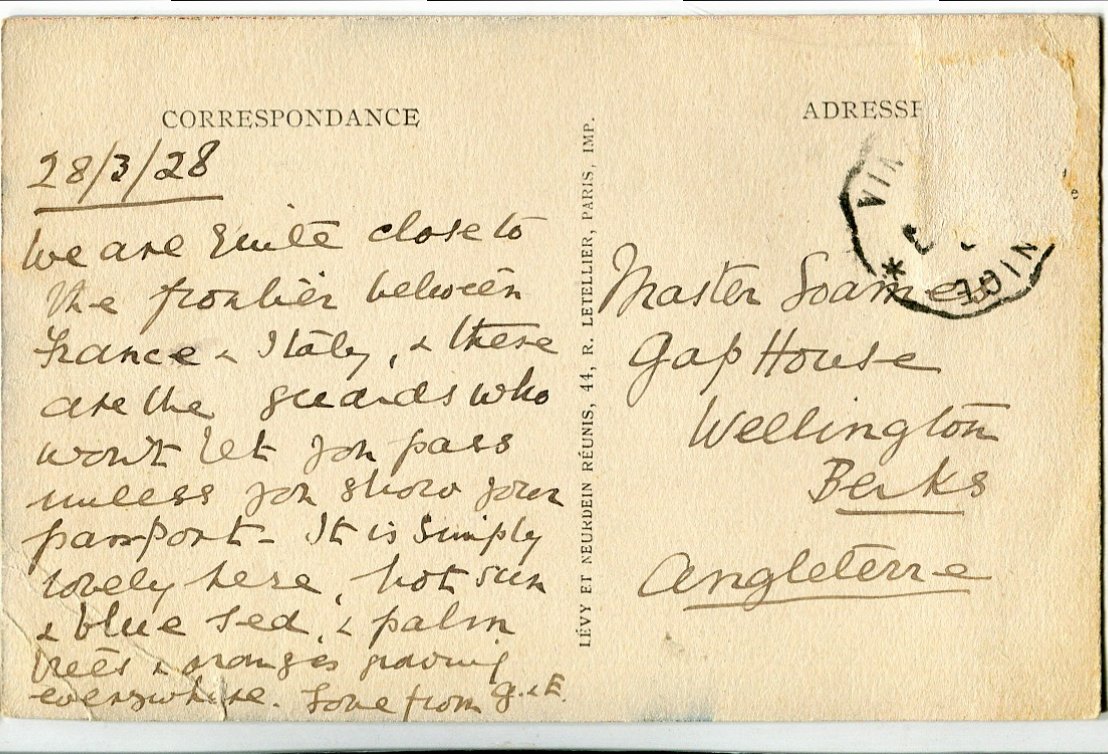 CORRESPONDANCE
28/3/28
We are quite close to
the frontier between
France & Italy, & these
are the guards who
won't let you pass
unless you show your
passport - It is simply
lovely here, hot sun
& blue sea, & palm
trees & oranges growing
everywhere. Love from G. & E.
LÉVY ET NEURDEIN RÉUNIS, 44, R. LETELLIER, PARIS, IMP.
ADRESSE
Master Soames
Gap House
Wellington
Berks
Angleterre